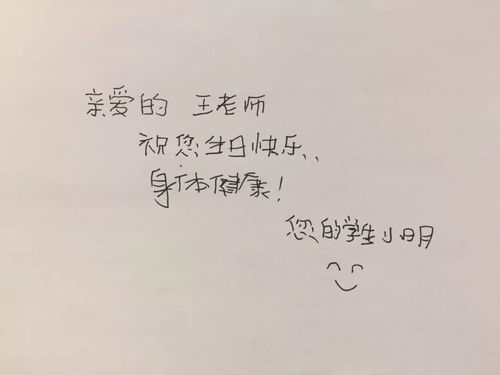 亲爱的 王老师
祝您生日快乐、
身体健康!
您的学生小明